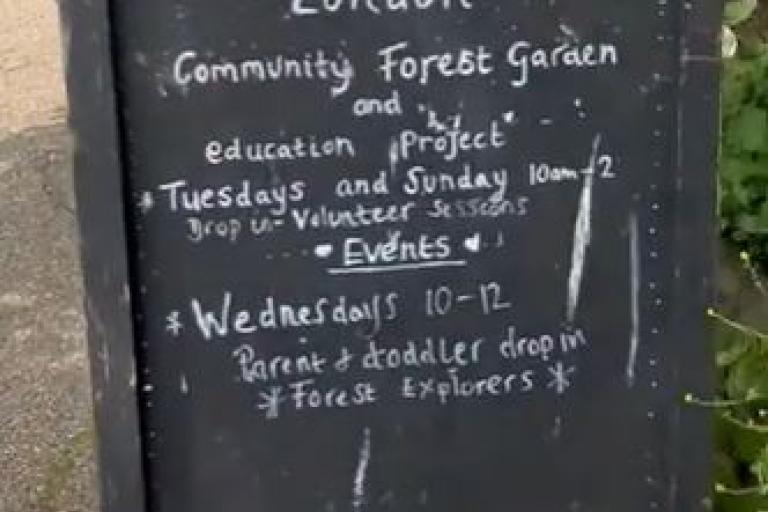 London
Community Forest Garden
and
education Project
* Tuesdays and Sunday 10am-2
Drop in - Volunteer Sessions
Events
* Wednesdays 10-12
Parent & toddler drop in
* Forest Explorers *